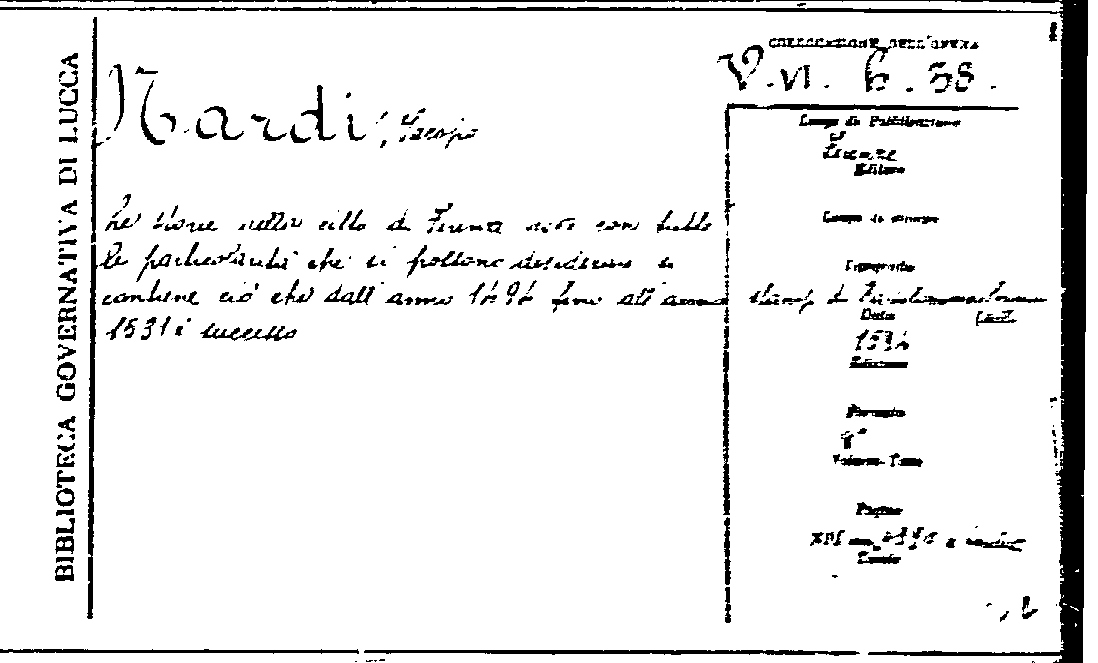 BIBLIOTECA GOVERNATIVA DI LUCCA
COLLOCAZIONE DELL'OPERA
V.VI. b. 38.
Nardi, Jacopo
Le storie della città di Firenze con tutte
le particolarità che si possono desiderare si
contiene ciò che dall'anno 1494 fino all'anno
1531 è successo
Luogo di Pubblicazione
Firenze
Editore
Luogo di stampa
Tipografo
Data
Edizione
Formato
8°
Volume-Tomo
Pagine